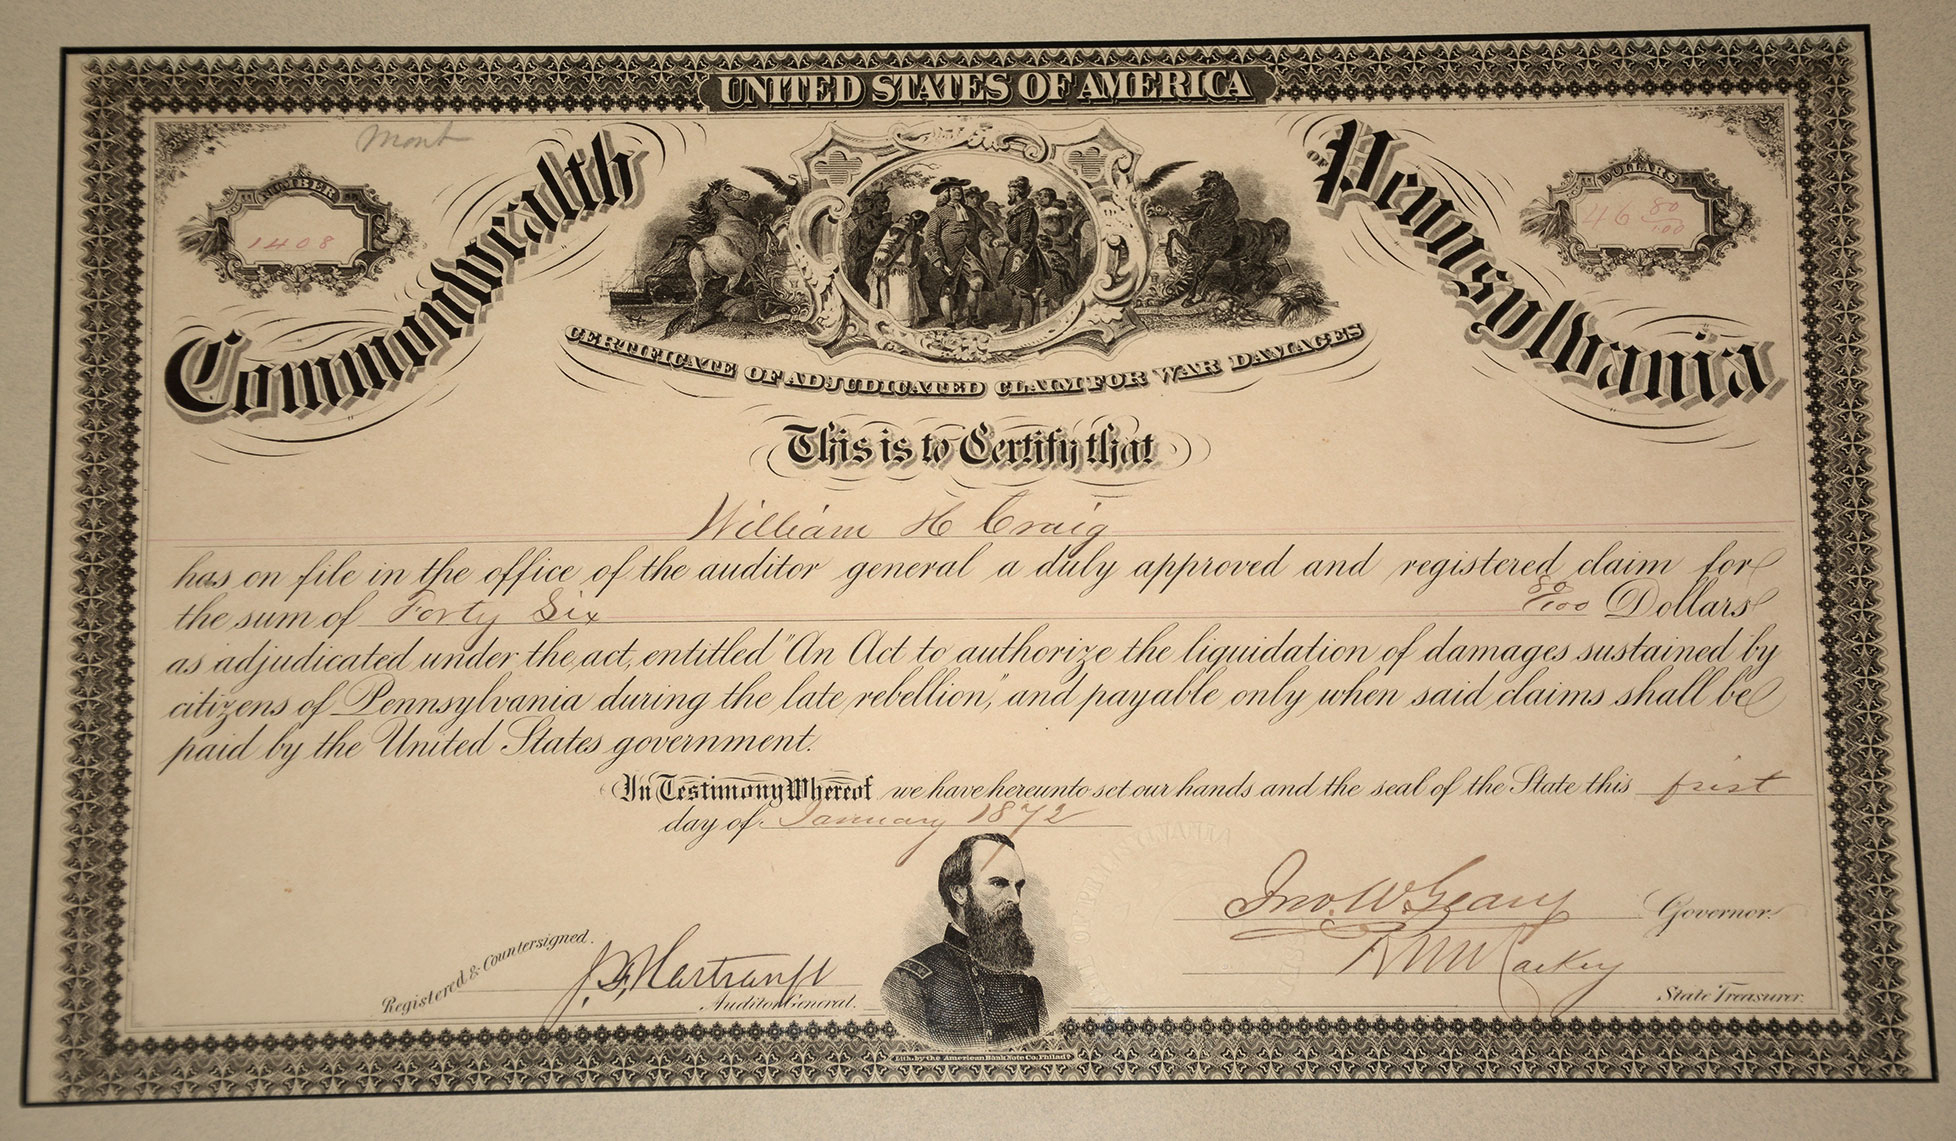 UNITED STATES OF AMERICA
Mont
Commonwealth OF Pennsylvania
NUMBER
1408
DOLLARS
46 80/100
CERTIFICATE OF ADJUDICATED CLAIM FOR WAR DAMAGES
This is to Certify that
William H Craig
has on file in the office of the auditor general a duly approved and registered claim for
the sum of Forty Six 80/100 Dollars
as adjudicated under the act, entitled "An Act to authorize the liquidation of damages sustained by
citizens of Pennsylvania during the late rebellion," and payable only when said claims shall be
paid by the United States government.
In Testimony Whereof we have hereunto set our hands and the seal of the State this first
day of January 1872
Jno. W. Geary Governor.
Registered & Countersigned.
J. F. Hartranft
Auditor General.
R W Mackey
State Treasurer.
Lith. by the American Bank Note Co. Philada